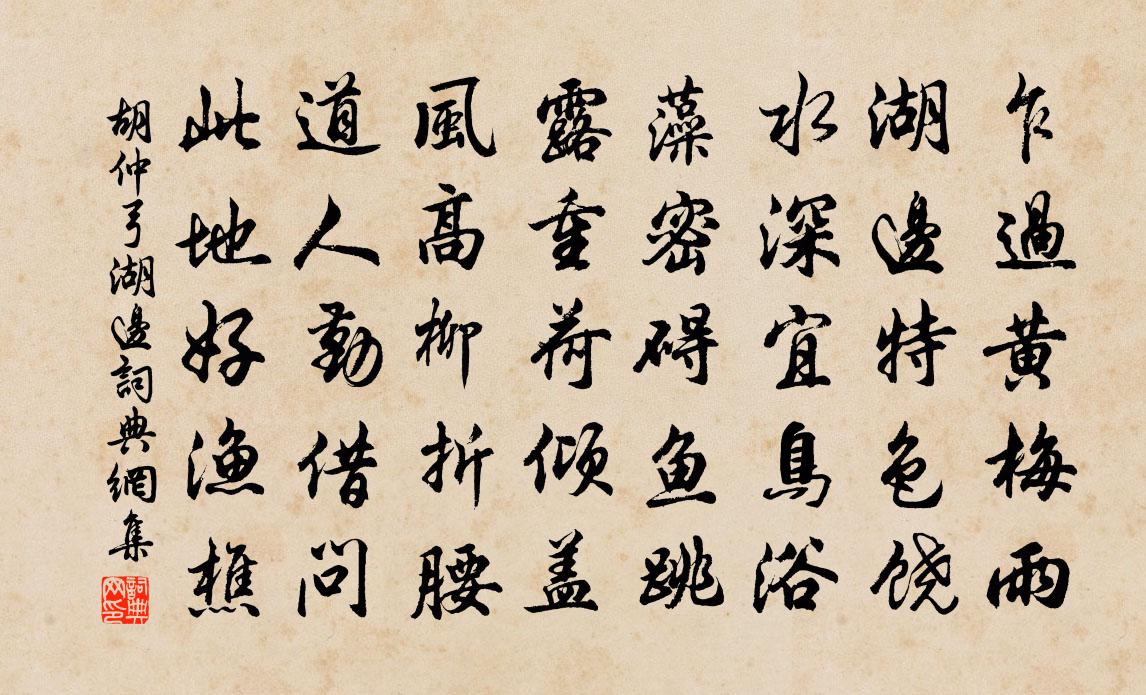 乍過黄梅雨
湖邊特色饶
水深宜鳥浴
藻密碍鱼跳
露重荷倾盖
風高柳折腰
道人勤借问
此地好漁樵
胡仲弓湖邊詞典網集
詞典网印